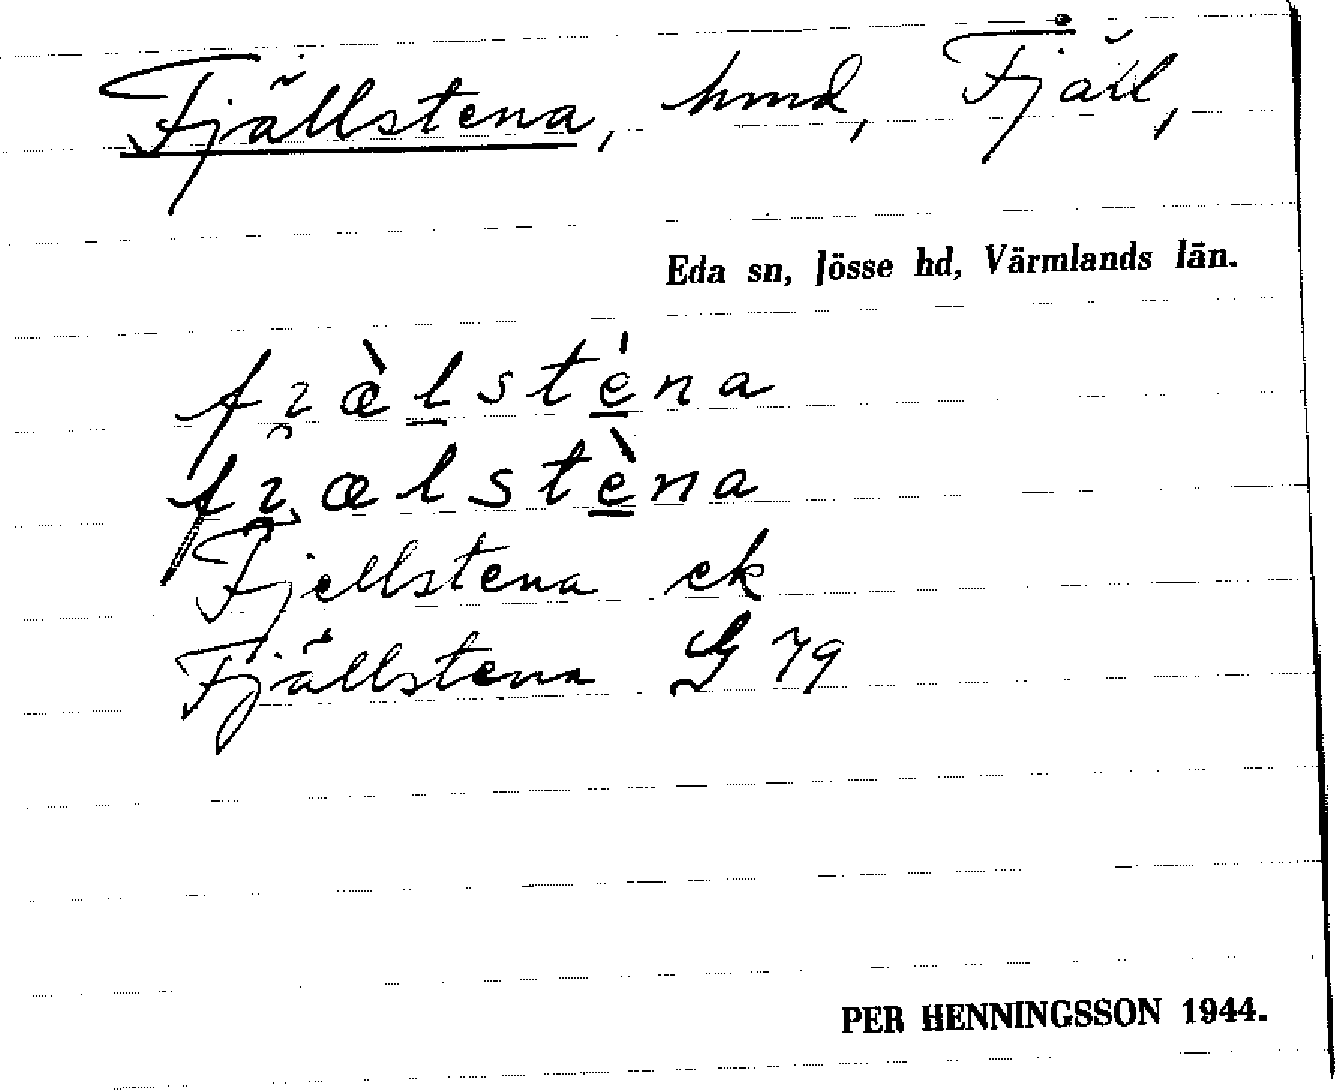 Fjällstena, hmd, Fjäll,
Eda sn, Jösse hd, Värmlands län.
fɿæ̀lsté̠na
fɿælstè̠na
Fjellstena ek
Fjällstena G 79
PER HENNINGSSON 1944.